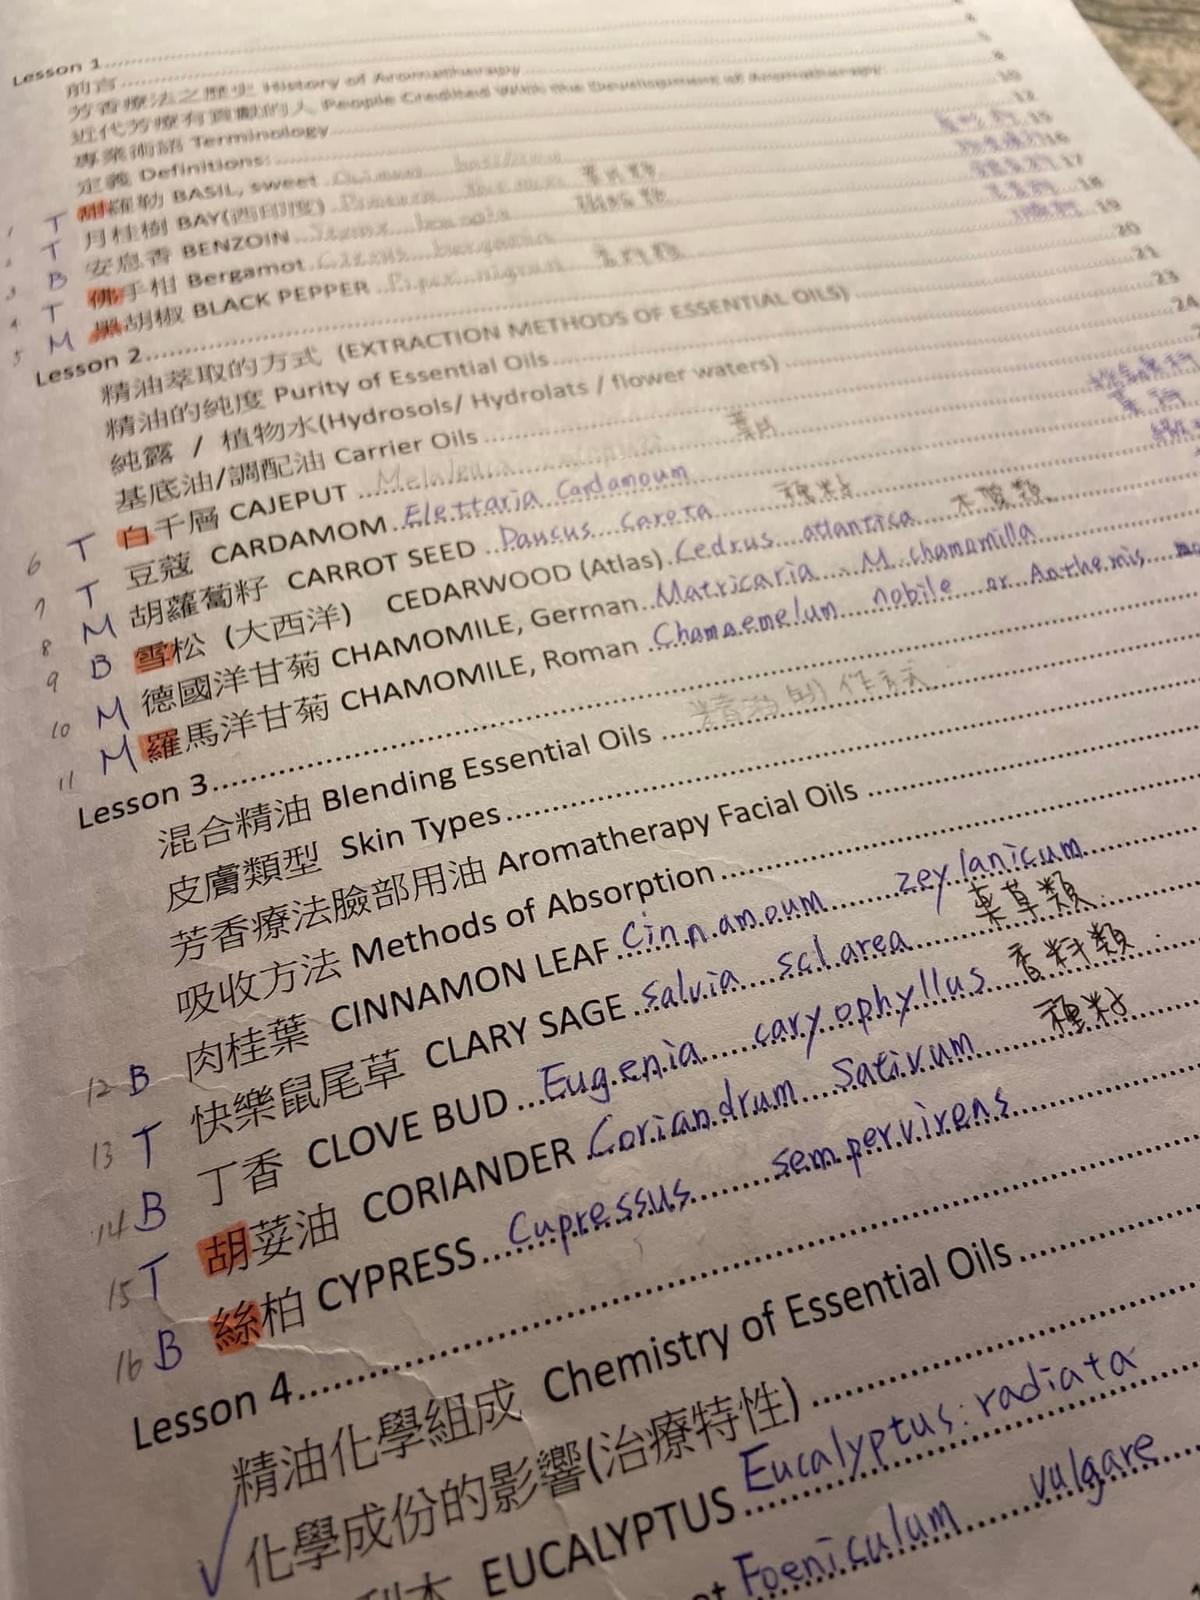 Lesson 1
前言
芳香療法之歷史 History of Aromatherapy
近代芳療有貢獻的人 People Credited With the Development of Aromatherapy
專業術語 Terminology
定義 Definitions: 12
1 T 胡羅勒 BASIL, sweet 15
2 T 月桂樹 BAY(西印度) 16
3 B 安息香 BENZOIN 17
4 T 佛手柑 Bergamot 18
5 M 黑胡椒 BLACK PEPPER Piper nigrum 19
Lesson 2 20
精油萃取的方式 (EXTRACTION METHODS OF ESSENTIAL OILS) 21
精油的純度 Purity of Essential Oils 23
純露 / 植物水(Hydrosols/ Hydrolats / flower waters) 24
基底油/調配油 Carrier Oils
6 T 白千層 CAJEPUT 葉片
7 T 豆蔻 CARDAMOM Elettaria Cardamoum
8 M 胡蘿蔔籽 CARROT SEED Daucus Carota 種籽
9 B 雪松 (大西洋) CEDARWOOD (Atlas) Cedrus atlantica 木質類
10 M 德國洋甘菊 CHAMOMILE, German Matricaria M chamomilla
11 M 羅馬洋甘菊 CHAMOMILE, Roman Chamaemelum nobile or Anthemis
Lesson 3
混合精油 Blending Essential Oils
皮膚類型 Skin Types
芳香療法臉部用油 Aromatherapy Facial Oils
吸收方法 Methods of Absorption
12 B 肉桂葉 CINNAMON LEAF Cinnamoum zeylanicum
13 T 快樂鼠尾草 CLARY SAGE salvia sclarea 藥草類
14 B 丁香 CLOVE BUD Eugenia caryophyllus 香料類
15 T 胡荽油 CORIANDER Coriandrum Sativum 種籽
16 B 絲柏 CYPRESS Cupressus sempervirens
Lesson 4
精油化學組成 Chemistry of Essential Oils
化學成份的影響(治療特性)
EUCALYPTUS Eucalyptus: radiata
Foeniculum vulgare